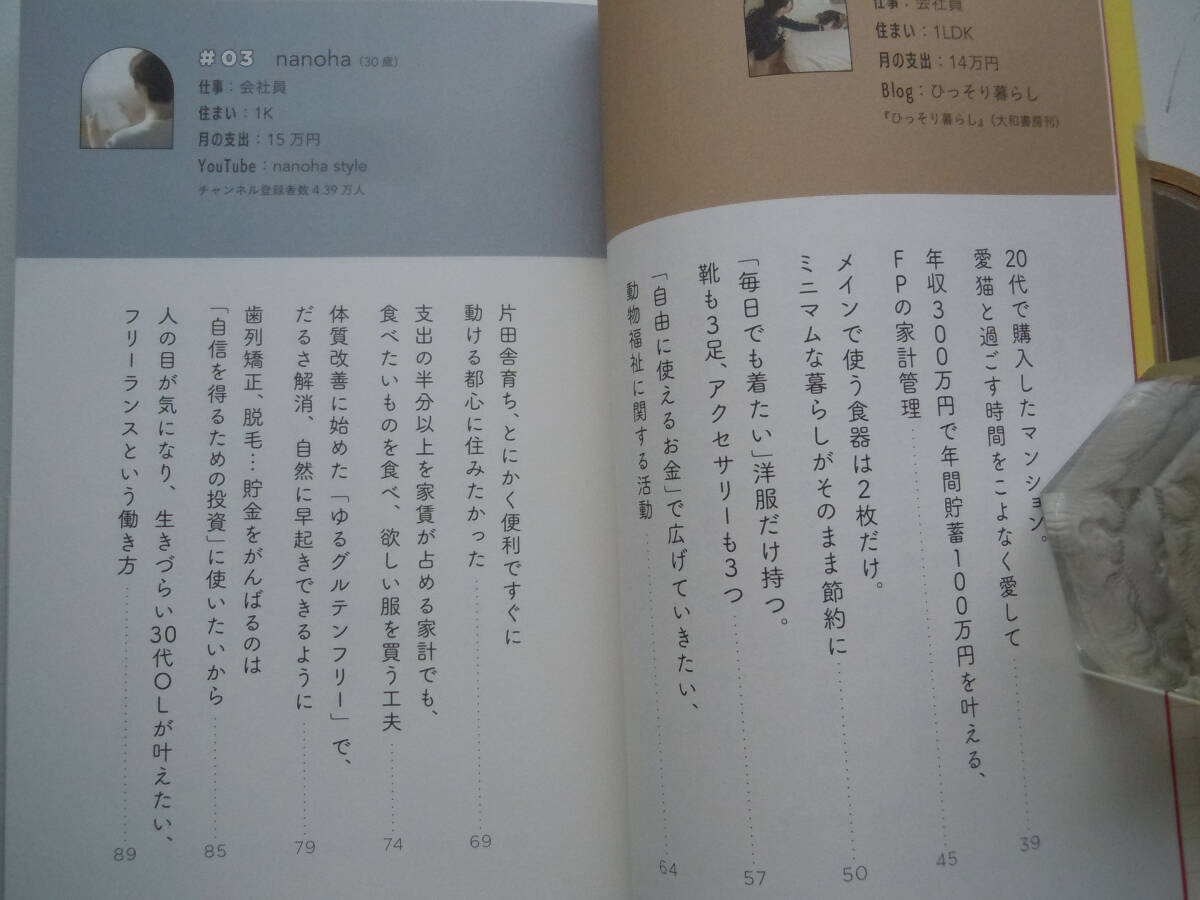 仕事：会社員
住まい：1LDK
月の支出：14万円
Blog：ひっそり暮らし
『ひっそり暮らし』（大和書房刊）
20代で購入したマンション。
愛猫と過ごす時間をこよなく愛して 39
年収300万円で年間貯蓄100万円を叶える、
FPの家計管理 45
メインで使う食器は2枚だけ。
ミニマムな暮らしがそのまま節約に 50
「毎日でも着たい」洋服だけ持つ。
靴も3足、アクセサリーも3つ 57
「自由に使えるお金」で広げていきたい、
動物福祉に関する活動 64
#03 nanoha（30歳）
仕事：会社員
住まい：1K
月の支出：15万円
YouTube：nanoha style
チャンネル登録者数4.39万人
片田舎育ち、とにかく便利ですぐに
動ける都心に住みたかった 69
支出の半分以上を家賃が占める家計でも、
食べたいものを食べ、欲しい服を買う工夫 74
体質改善に始めた「ゆるグルテンフリー」で、
だるさ解消、自然に早起きできるように 79
歯列矯正、脱毛…貯金をがんばるのは
「自信を得るための投資」に使いたいから 85
人の目が気になり、生きづらい30代OLが叶えたい、
フリーランスという働き方 89